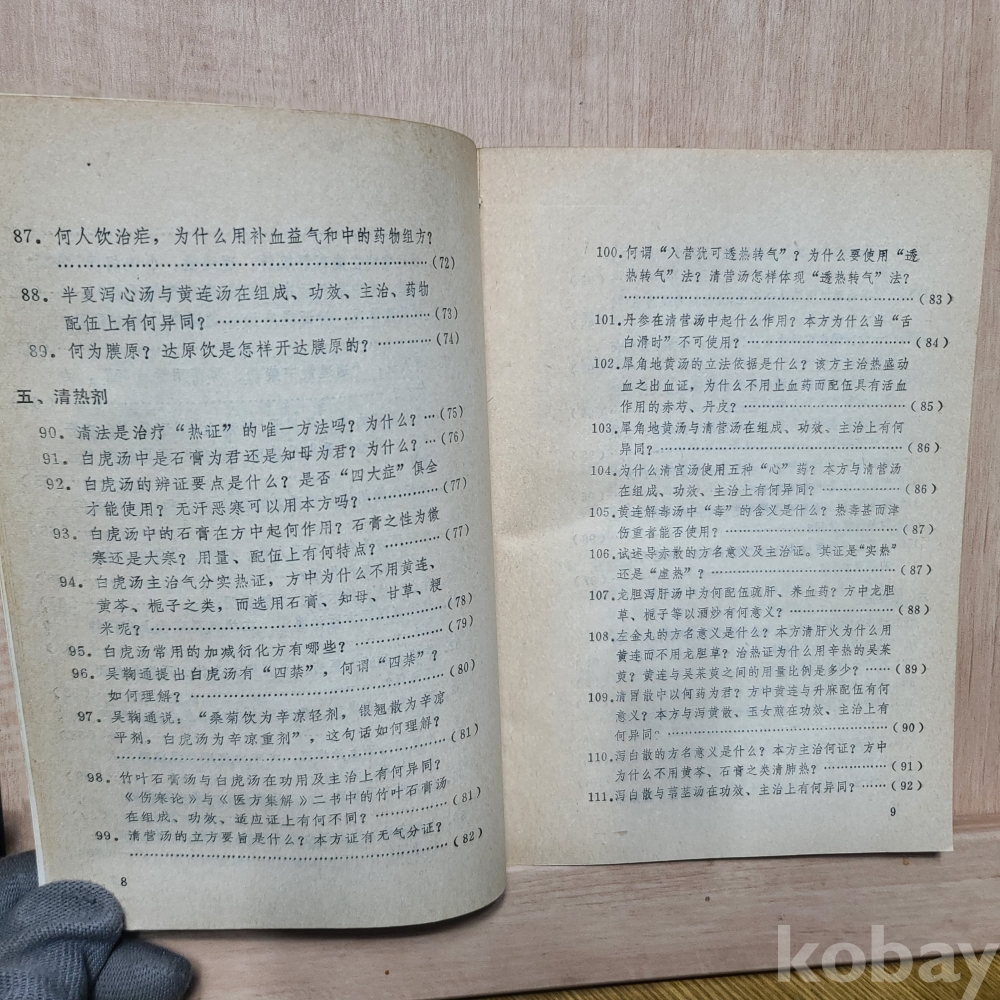 87. 何人饮治疟，为什么用补血益气和中的药物组方？
……………………………………………………(72)
88. 半夏泻心汤与黄连汤在组成、功效、主治、药物
配伍上有何异同？……………………………(73)
89. 何为膜原？达原饮是怎样开达膜原的？…………(74)
五、清热剂
90. 清法是治疗“热证”的唯一方法吗？为什么？…(75)
91. 白虎汤中是石膏为君还是知母为君？为什么？…(76)
92. 白虎汤的辨证要点是什么？是否“四大症”俱全
才能使用？无汗恶寒可以用本方吗？…………(77)
93. 白虎汤中的石膏在方中起何作用？石膏之性为微
寒还是大寒？用量、配伍上有何特点？………(77)
94. 白虎汤主治气分实热证，方中为什么不用黄连、
黄芩、栀子之类，而选用石膏、知母、甘草、粳
米呢？……………………………………………(78)
95. 白虎汤常用的加减衍化方有哪些？………………(79)
96. 吴鞠通提出白虎汤有“四禁”，何谓“四禁”？
如何理解？………………………………………(80)
97. 吴鞠通说：“桑菊饮为辛凉轻剂，银翘散为辛凉
平剂，白虎汤为辛凉重剂”，这句话如何理解？
……………………………………………………(81)
98. 竹叶石膏汤与白虎汤在功用及主治上有何异同？
《伤寒论》与《医方集解》二书中的竹叶石膏汤
在组成、功效、适应证上有何不同？…………(81)
99. 清营汤的立方要旨是什么？本方证有无气分证？
……………………………………………………(82)
8
100. 何谓“入营犹可透热转气”？为什么要使用“透
热转气”法？清营汤怎样体现“透热转气”法？
……………………………………………………(83)
101. 丹参在清营汤中起什么作用？本方为什么当“舌
白滑时”不可使用？……………………………(84)
102. 犀角地黄汤的立法依据是什么？该方主治热盛动
血之出血证，为什么不用止血药而配伍具有活血
作用的赤芍、丹皮？……………………………(85)
103. 犀角地黄汤与清营汤在组成、功效、主治上有何
异同？……………………………………………(86)
104. 为什么清宫汤使用五种“心”药？本方与清营汤
在组成、功效、主治上有何异同？……………(86)
105. 黄连解毒汤中“毒”的含义是什么？热毒甚而津
伤重者能否使用？………………………………(87)
106. 试述导赤散的方名意义及主治证。其证是“实热”
还是“虚热”？…………………………………(87)
107. 龙胆泻肝汤中为何配伍疏肝、养血药？方中龙胆
草、栀子等以酒炒有何意义？…………………(88)
108. 左金丸的方名意义是什么？本方清肝火为什么用
黄连而不用龙胆草？治热证为什么用辛热的吴茱
萸？黄连与吴茱萸之间的用量比例是多少？……(89)
109. 清胃散中以何药为君？方中黄连与升麻配伍有何
意义？本方与泻黄散、玉女煎在功效、主治上有
何异同？…………………………………………(90)
110. 泻白散的方名意义是什么？本方主治何证？方中
为什么不用黄芩、石膏之类清肺热？…………(91)
111. 泻白散与葶苈汤在功效、主治上有何异同？……(92)
9
kobay